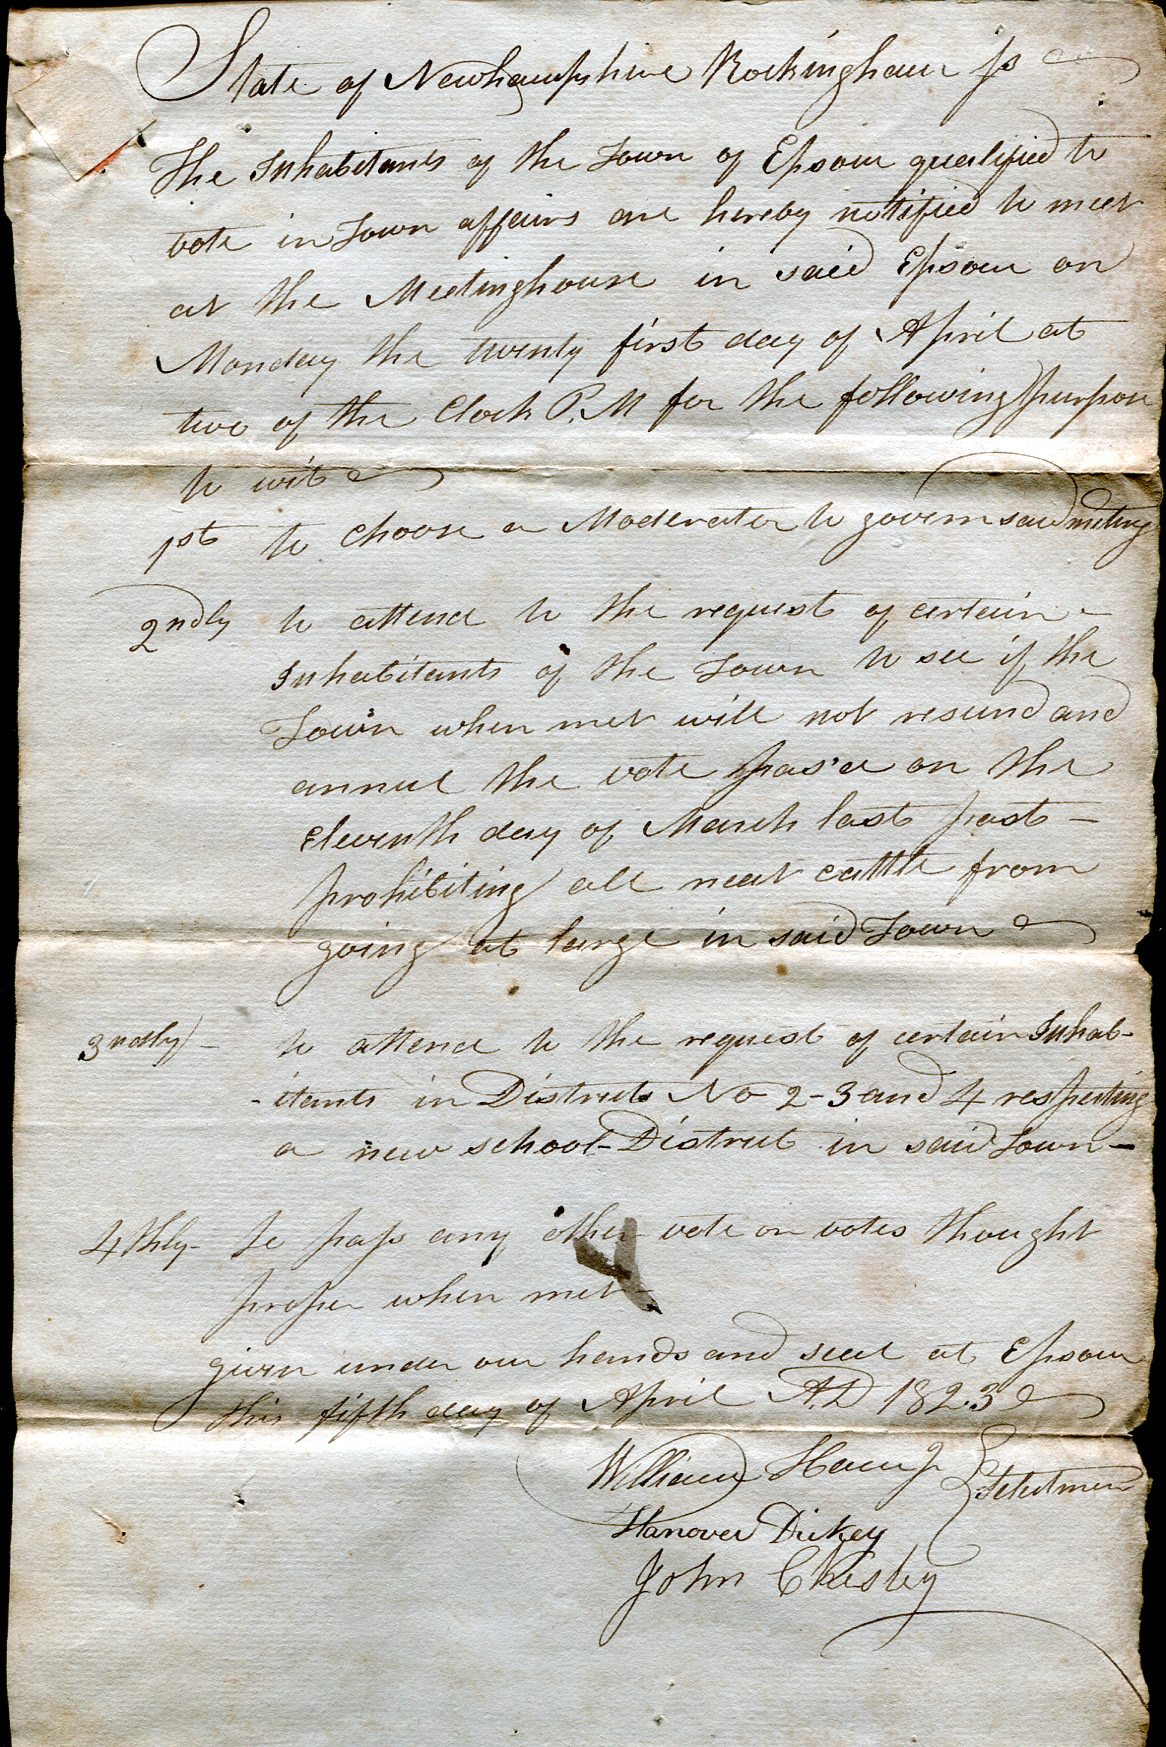 State of Newhampshire Rockingham ss
The Inhabitants of the Town of Epsom qualified to
vote in Town affairs are hereby notified to meet
at the Meetinghouse in said Epsom on
Monday the twenty first day of April at
two of the Clock P.M for the following purpose
to wit
1st to choose a Moderator to govern said meeting
2ndly to attend to the request of certain -
Inhabitants of the Town to see if the
Town when met will not resind and
annul the vote pas'd on the
Eleventh day of March last past -
prohibiting all neat cattle from
going at large in said Town
3ndly - to attend to the request of certain Inhab-
-itants in Districts No 2-3 and 4 respecting
a new school-District in said Town -
4thly - To pass any other vote or votes thought
proper when met -
given under our hands and seal at Epsom
this fifth day of April A.D 1823
William Ham Jr Selectmen
Hanover Dickey
John Chesley